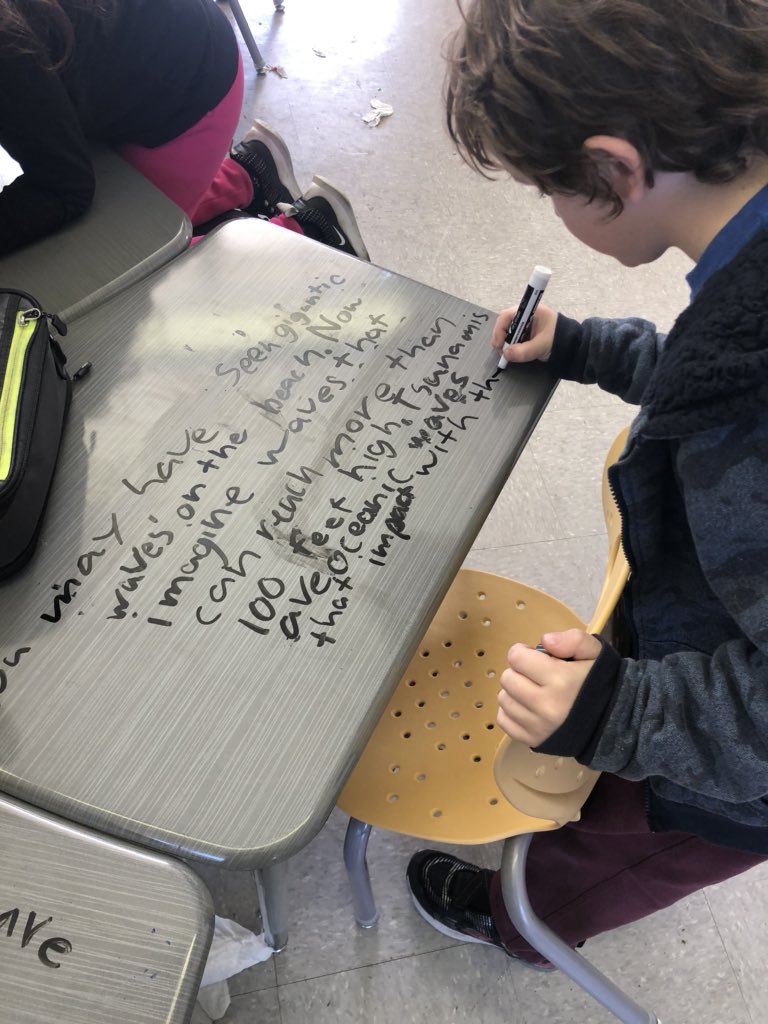 ou may have Seen gigantic
waves on the beach. Now
Imagine waves that
can reach more than
100 feet high. Tsunamis
are oceanic waves
that impact with th
ave